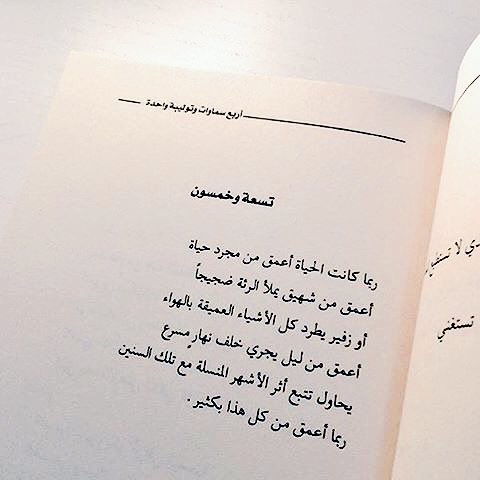 أربع سماوات وتوليبة واحدة
تسعة وخمسون
ربما كانت الحياة أعمق من مجرد حياة
أعمق من شهيق يملأ الرئة ضجيجاً
أو زفير يطرد كل الأشياء العميقة بالهواء
أعمق من ليل يجري خلف نهارٍ مسرع
يحاول تتبع أثر الأشهر المنسلة مع تلك السنين
ربما أعمق من كل هذا بكثير .
لا تستغني
تستغني